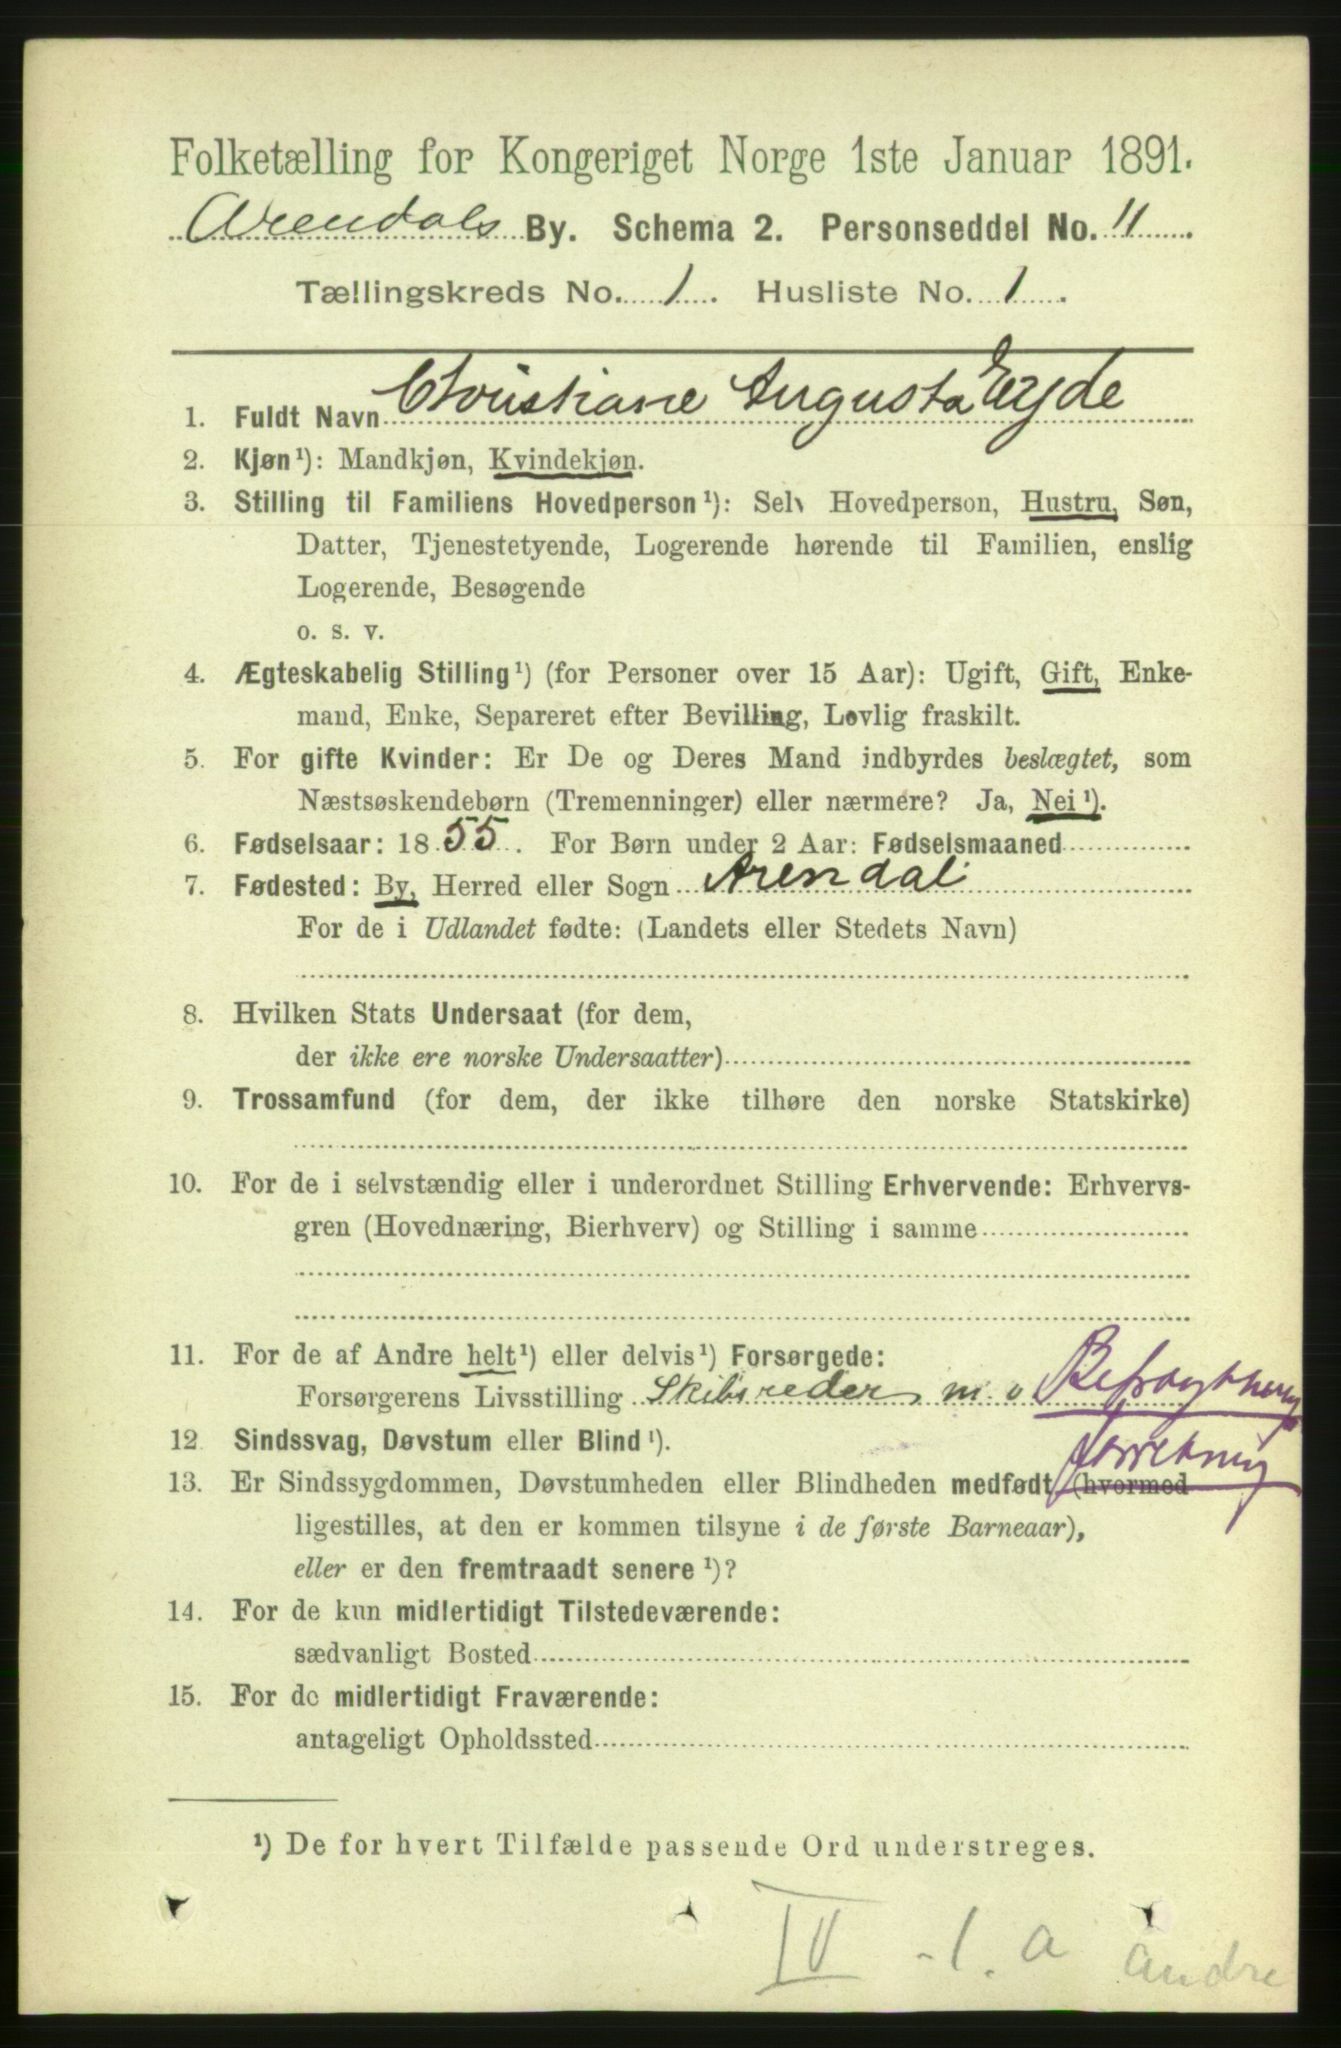 Folketælling for Kongeriget Norge 1ste Januar 1891.
Arendals By. Schema 2. Personseddel No. 11
Tællingskreds No. 1. Husliste No. 1.
1. Fuldt Navn Christiane Augusta Eyde
2. Kjøn¹): Mandkjøn, Kvindekjøn.
3. Stilling til Familiens Hovedperson¹): Selv Hovedperson, Hustru, Søn,
Datter, Tjenestetyende, Logerende hørende til Familien, enslig
Logerende, Besøgende
o. s. v.
4. Ægteskabelig Stilling¹) (for Personer over 15 Aar): Ugift, Gift, Enke-
mand, Enke, Separeret efter Bevilling, Lovlig fraskilt.
5. For gifte Kvinder: Er De og Deres Mand indbyrdes beslægtet, som
Næstsøskendebørn (Tremenninger) eller nærmere? Ja, Nei¹).
6. Fødselsaar: 1855. For Børn under 2 Aar: Fødselsmaaned
7. Fødested: By, Herred eller Sogn Arendal
For de i Udlandet fødte: (Landets eller Stedets Navn)
8. Hvilken Stats Undersaat (for dem,
der ikke ere norske Undersaatter)
9. Trossamfund (for dem, der ikke tilhøre den norske Statskirke)
10. For de i selvstændig eller i underordnet Stilling Erhvervende: Erhvervs-
gren (Hovednæring, Bierhverv) og Stilling i samme
11. For de af Andre helt¹) eller delvis¹) Forsørgede:
Forsørgerens Livsstilling Skibsreder m. v Befragtnings
forretning
12. Sindssvag, Døvstum eller Blind¹).
13. Er Sindssygdommen, Døvstumheden eller Blindheden medfødt (hvormed
ligestilles, at den er kommen tilsyne i de første Barneaar),
eller er den fremtraadt senere¹)?
14. For de kun midlertidigt Tilstedeværende:
sædvanligt Bosted
15. For de midlertidigt Fraværende:
antageligt Opholdssted
¹) De for hvert Tilfælde passende Ord understreges.
IV -1. a andre